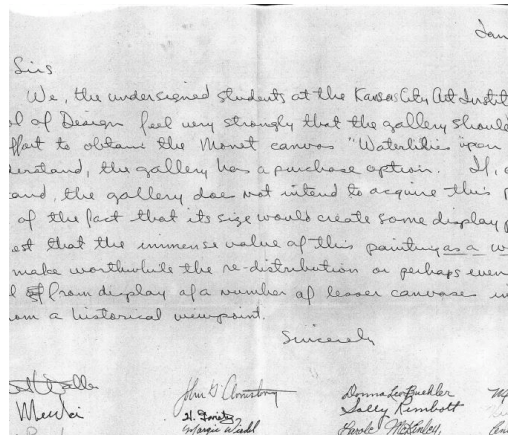 Jan
Sirs
We, the undersigned students at the Kansas City Art Instit
ol of Design feel very strongly that the gallery should
ffort to obtain the Monet canvas "Waterlilies upon
derstand, the gallery has a purchase option. If,
and, the gallery does not intend to acquire this p
of the fact that its size would create some display p
est that the immense value of this painting as a w
make worthwhile the re-distribution or perhaps even
l from display of a number of lesser canvases
om a historical viewpoint.
Sincerely
John G Armstrong
Donna Lee Buehler
Sally Rimbott
Margie Weddl
Carole McKinley,